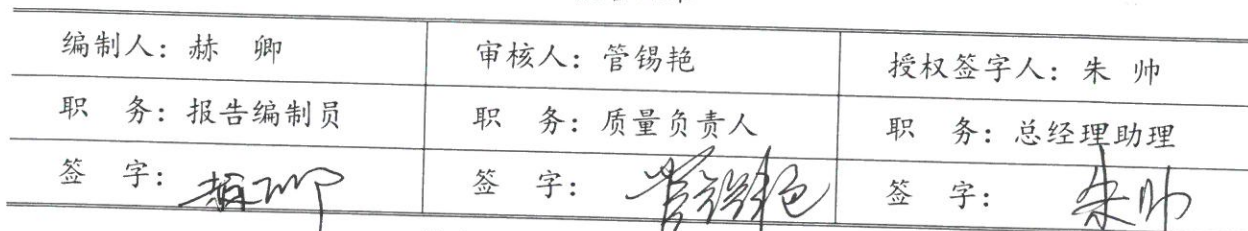 编制人：赫 卿 审核人：管锡艳 授权签字人：朱 帅
职 务：报告编制员 职 务：质量负责人 职 务：总经理助理
签 字：赫卿 签 字：管锡艳 签 字：朱帅